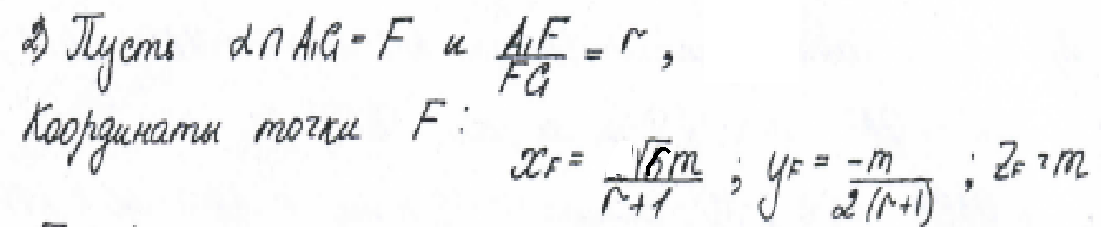 2) Пусть α ∩ A₁C₁ = F и A₁F/FC₁ = r,
Координаты точки F:
x_F = √6m/(r+1); y_F = -m/(2(r+1)); z_F = m